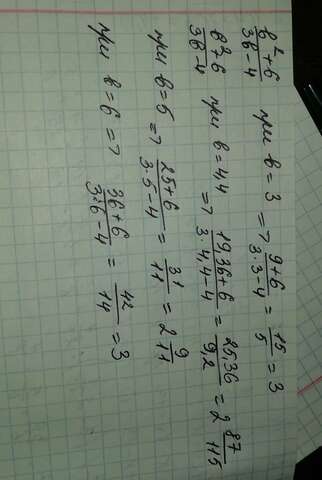 (в²+6)/(3в-4) при в=3 => (9+6)/(3·3-4) = 15/5 = 3
(в²+6)/(3в-4) при в=4,4 => (19,36+6)/(3·4,4-4) = 25,36/9,2 = 2 87/115
при в=5 => (25+6)/(3·5-4) = 31/11 = 2 9/11
при в=6 => (36+6)/(3·6-4) = 42/14 = 3